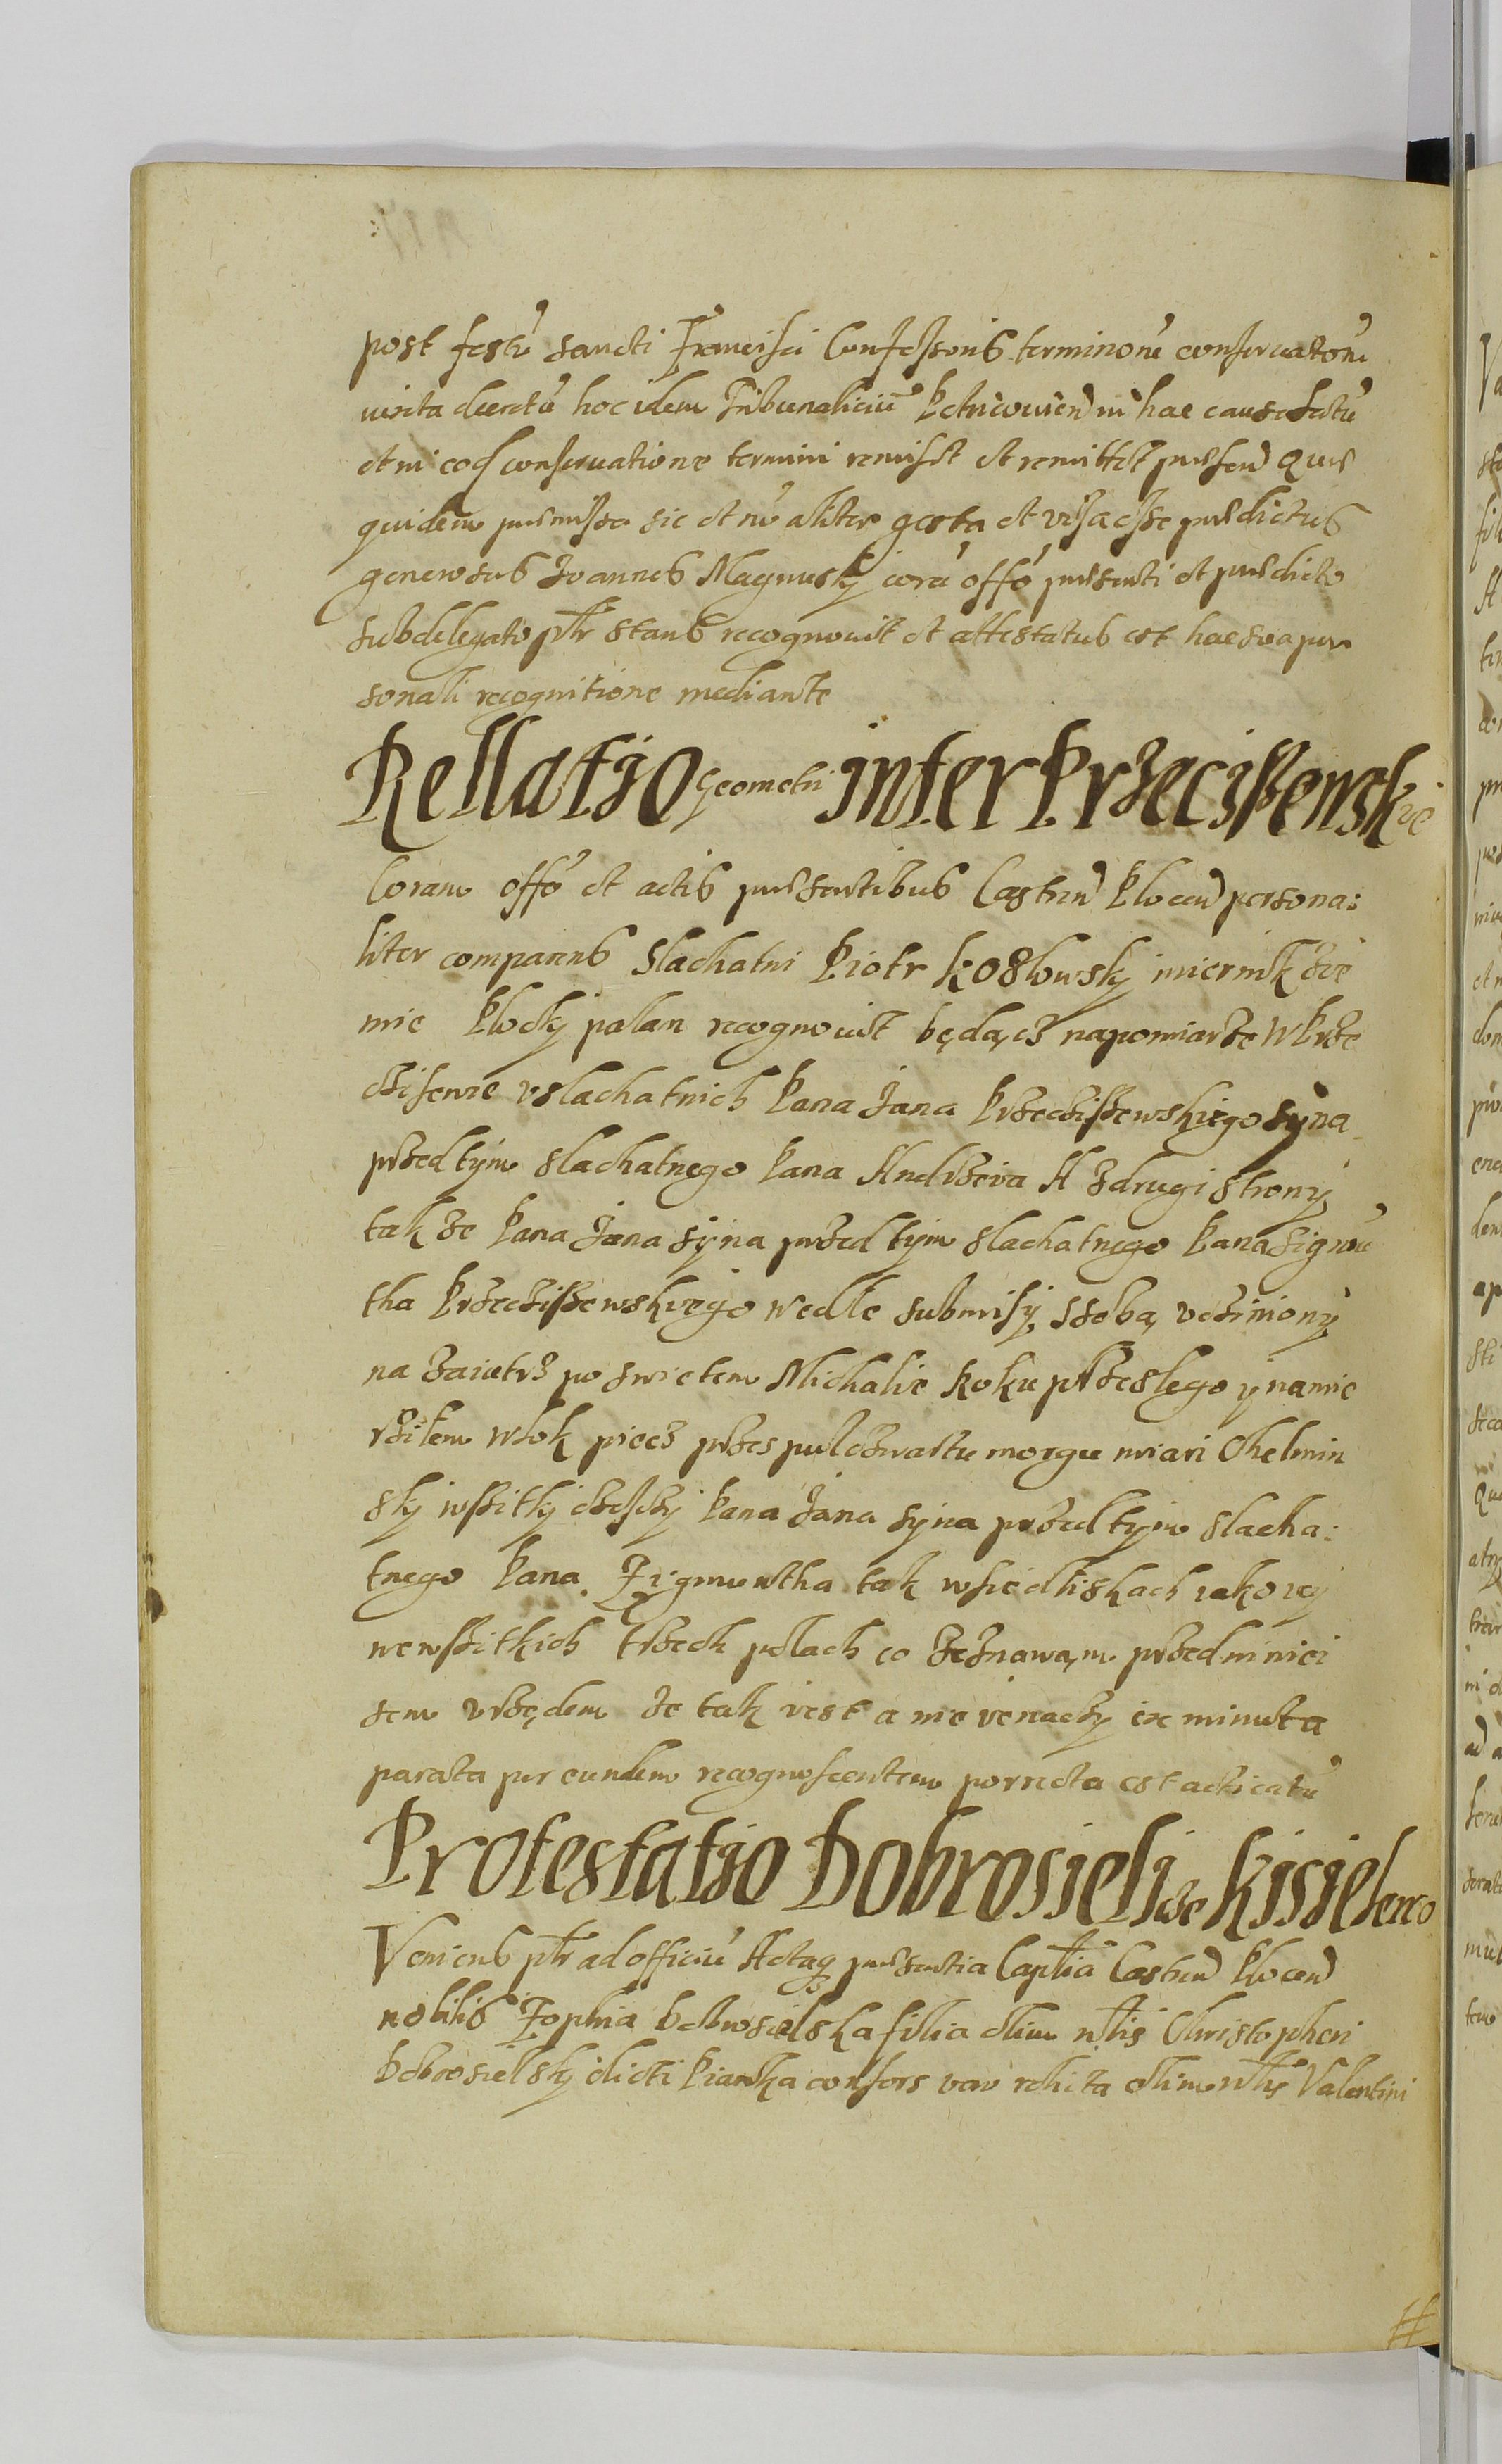 post festũ sancti Francisci Confessoris terminonẽ conservatonẽ
iuxta decretũ hoc idem Tribunaliciũ Petricovien in hac causa latũ
et in eod conservatione termini remisit et remittit presen Quae
quidem praemissa sic et nõ aliter gesta et visa esse praedictus
generosus Joannes Magnusky corã offõ praesenti et praedicto
subdelegato ptr stans recognovit et attestatus est hac sua per
sonali recognitione mediante
Rellatio Geometri inter Przeciszewskie
Coram offõ et actis praesentibus Castren Plocen persona:
liter comparens Slachatni Piotr Koslowsky miernik zie
mie Plocky palan recognovit będącz na pomiarze w Prze
cziszewie v slachatnich Pana Jana Przecziszewskiego syna
przed tym slachatnego Pana Andrzeia A z drugi strony
tak ze Pana Jana syna przed tym slachatnego Pana Zigmũ
tha Przecziszewskiego wedle submisy z sobą vcziniony
na zaiutrz po swietem Michalie Roku przeslego y namie
rzilem wlok piecz przes pulczwartu morgu miari Chelmin
sky wszitky czesczy Pana Jana syna przed tym slacha:
tnego Pana Zigmuntha tak w siedliskach iako vy
we wszitkich trzech polach co zeznawam przed niniei
sem vrzędem ze tak iest a nie ienaczy ex minuta
parata per eundem recognoscentem porrecta est acticatũ
Protestatio Dobrosielize Kisielewo
Veniens ptr ad officiũ Actaq praesentia Captia Castren Plocen
nobilis Zophia Dobrosielska filia olim nlis Christopheri
Dobrosielsky dicti Piantka consors vero relicta olim nlis Valentini